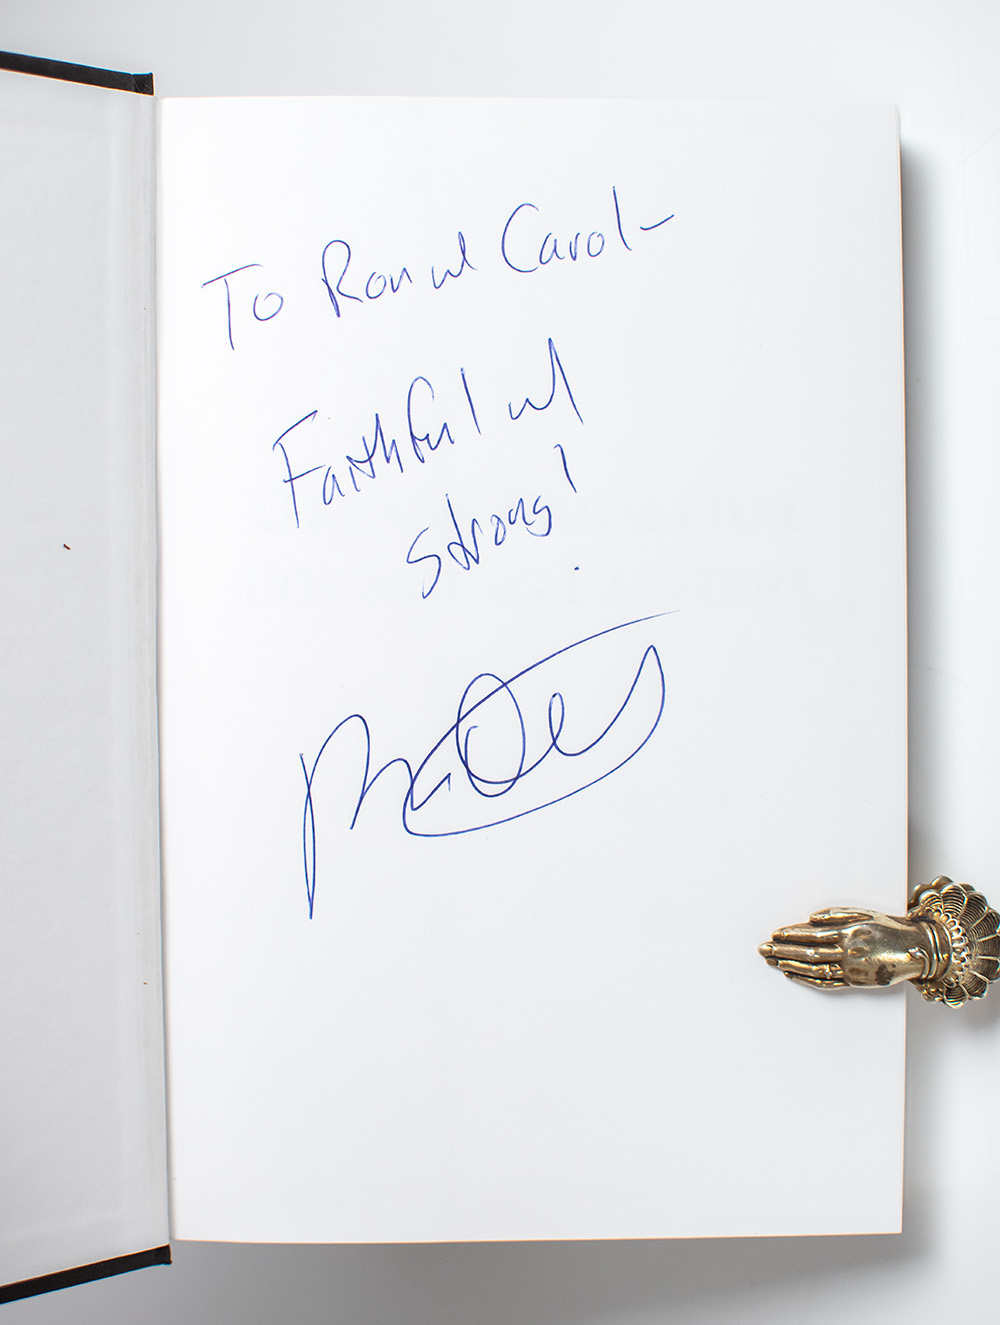 To Ron and Carol –
Faithful and
strong!